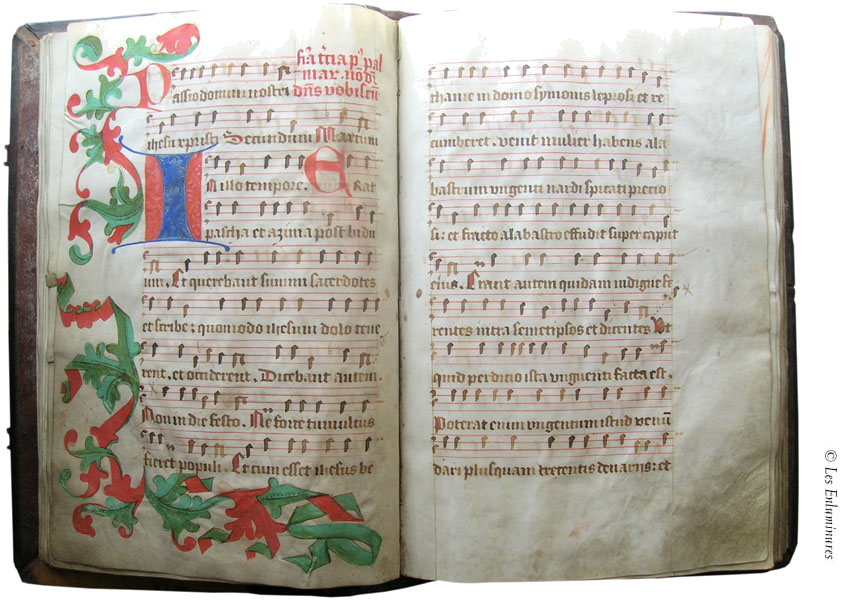 fr̄a t̄cia p' pal
mar. nō dī
dn̄s vobiscū
Passio domini nostri
ihesu xpristi Secundum Marcum
In illo tempore. Erat
pascha et azima post bidu
um. Et querebant summi sacerdotes
et scribe: quomodo ihesum dolo tene
rent. et occiderent. Dicebant autem.
Non in die festo. Ne forte tumultus
fieret populi. Et cum esset ihesus be
thanie in domo symonis leprosi et re
cumberet. venit mulier habens ala
bastrum vngenti nardi spicati precio
si: et fracto alabastro effudit super caput
eius. Erant autem quidam indigne fe
rentes intra semetipsos et dicentes Vt
quid perditio ista vnguenti facta est.
Poterat enim vngentum istud venū
dari plusquam trecentis denarijs: et
© Les Enluminures